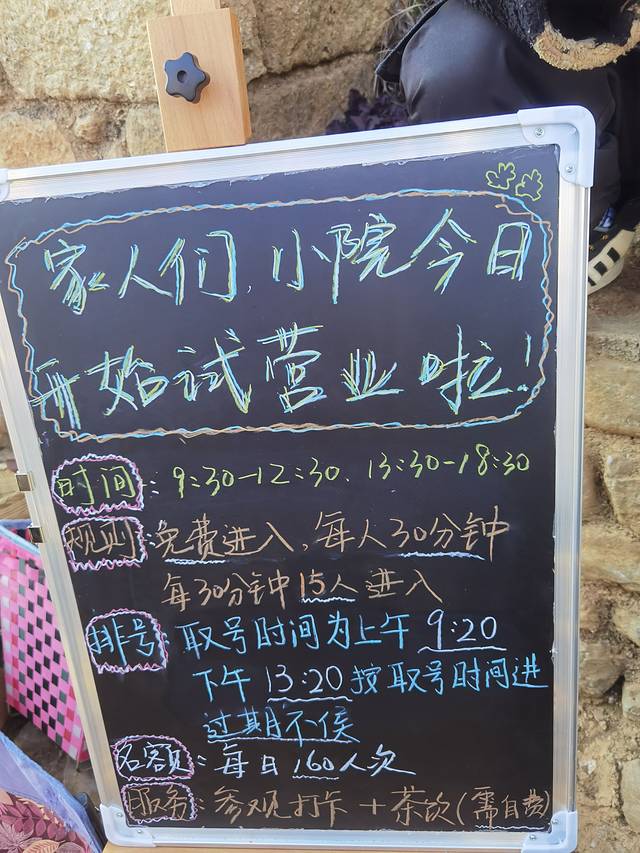 家人们,小院今日
开始试营业啦!
时间:9:30-12:30、13:30-18:30
规则:免费进入,每人30分钟
每30分钟15人进入
排号 取号时间为上午 9:20
下午 13:20 按取号时间进
过期不侯
名额:每日160人次
服务:参观打卡+茶饮(需自费)